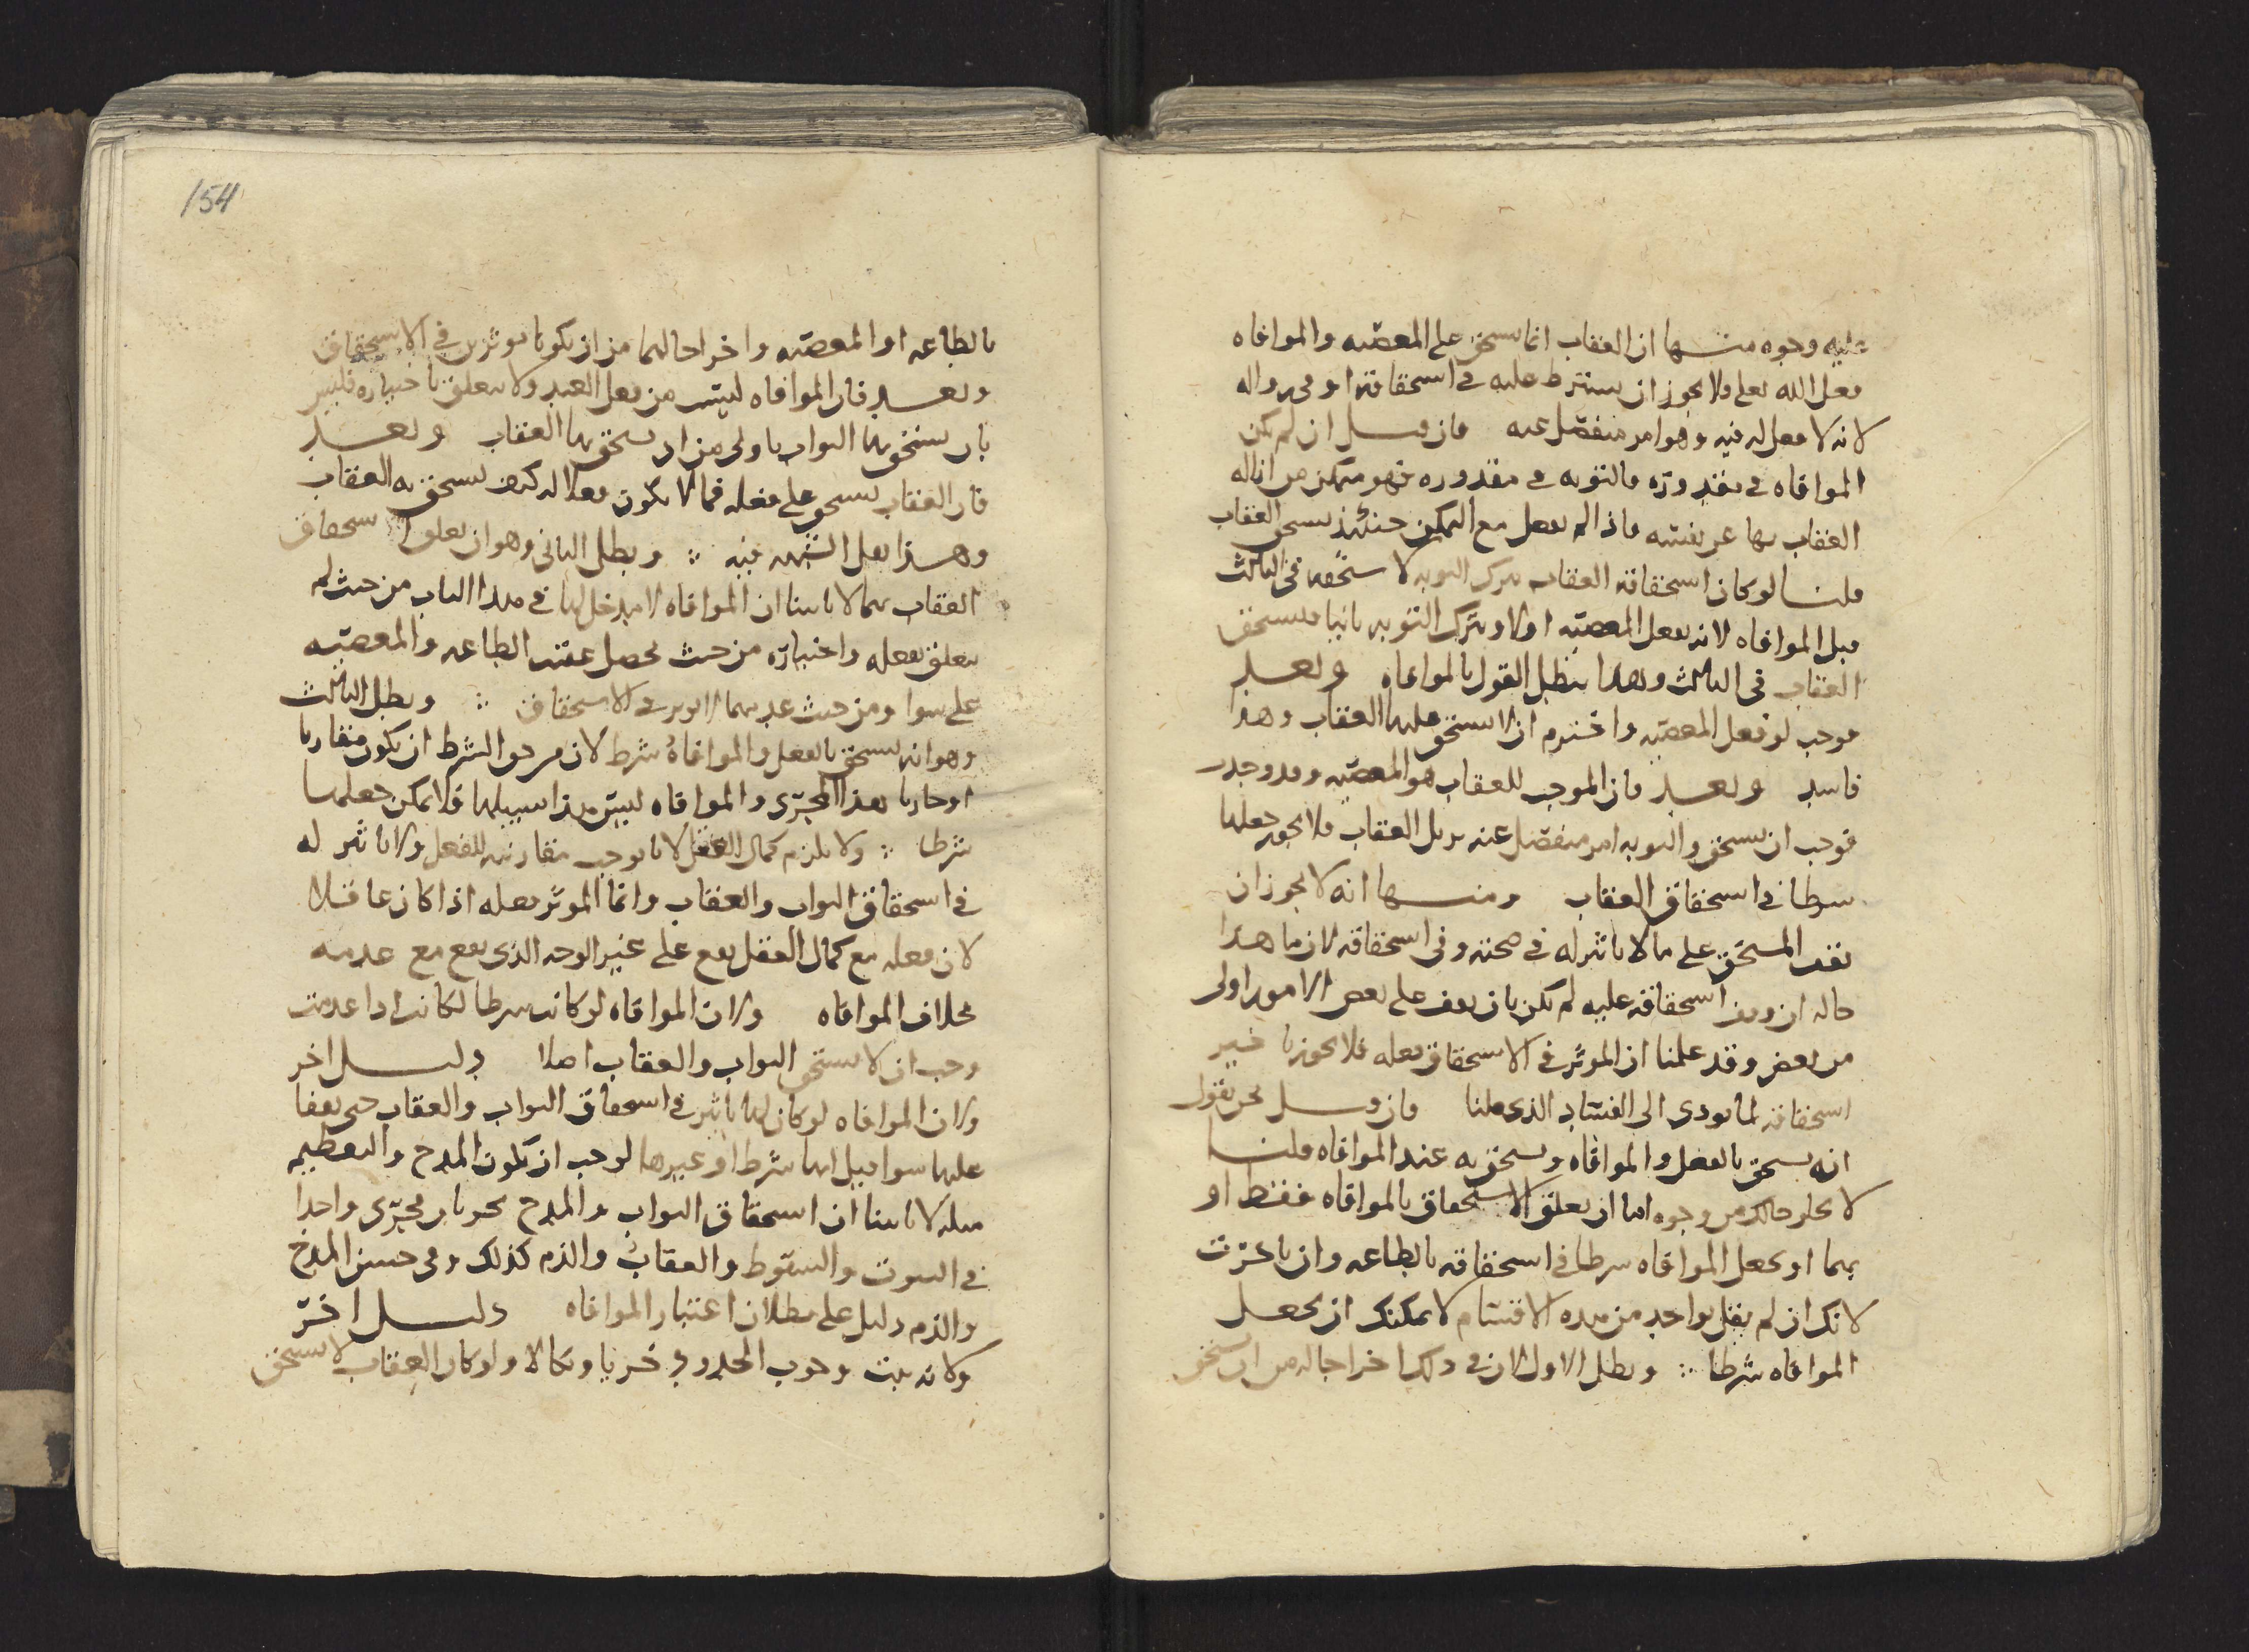 عليه وجوه منها ان العقاب انما يستحق على المعصيه والموافاه
فعل الله تعلى ولا يجوز ان يشترط عليه في استحقاقه او في زواله
لانه لا فعل له فيه وهو امر منفصل عنه فان قيل ان لم تكن
الموافاه في مقدوره فالتوبه في مقدوره فهو متمكن من ازاله
العقاب بها عن نفسه فاذا لم يفعل مع التمكن حينئذ يستحق العقاب
قلنا لو كان استحقاقه العقاب بترك التوبه لاستحقه في الثالث
قبل الموافاه لانه يفعل المعصيه اولا ويترك التوبه ثانيا فيستحق
العقاب في الثالث وهذا يبطل القول بالموافاه وبعد
فوجب لو فعل المعصيه واخترم ان لا يستحق عليها العقاب وهذا
فاسد وبعد فان الموجب للعقاب هو المعصيه وقد وجدت
فوجب ان يستحق والتوبه امر منفصل عنه يزيل العقاب فلا يجوز جعلها
شرطا في استحقاق العقاب ومنها انه لا يجوز ان
يقف المستحق على ما لا تاثير له في صحته وفي استحقاقه لان ما هذا
حاله ان وقف استحقاقه عليه لم يكن بان يقف على بعض الامور اولى
من بعض وقد علمنا ان الموثر في الاستحقاق فعله فلا يجوز تاخير
استحقاقه لما يودي الى الفساد الذي قلنا فان قيل نحن نقول
انه يستحق بالفعل والموافاه ويستحق به عند الموافاه قلنا
لا يخلو حالك من وجوه اما ان تعلق الاستحقاق بالموافاه فقط او
بهما او تجعل الموافاه شرطا في استحقاقه بالطاعه وان تاخرت
لانك ان لم تقل بواحد من هذه الاقسام لا يمكنك ان تجعل
الموافاه شرطا ∴ وبطل الاول لان في ذلك اخراجا له من ان يستحق
154
بالطاعه او المعصيه واخراجا لهما من ان يكونا موثرين في الاستحقاق
وبعد فان الموافاه ليست من فعل العبد ولا تتعلق باختياره فليس
بان يستحق بها الثواب باولى من ان يستحق بها العقاب وبعد
فان العقاب يستحق على فعله فما لا يكون فعلا له كيف يستحق به العقاب
وهذا يقل الشبهه فيه ∴ وبطل الثاني وهو ان يعلق استحقاق
العقاب بهما لانا بينا ان الموافاه لا مدخل لها في هذا الباب من حيث لم
تتعلق بفعله واختياره من حيث تحصل عقيب الطاعه والمعصيه
على سوا ومن حيث عدمهما لا يوثر في الاستحقاق ∴ وبطل الثالث
وهو انه يستحق بالفعل والموافاة شرط لان من حق الشرط ان يكون مقارنا
او جاريا هذا المجرى والموافاه ليس هذا سبيلها فلا يمكن جعلها
شرطا ∴ ولا يلزم كمال العقل لانا نوجب مقارنته للفعل ولا تاثير له
في استحقاق الثواب والعقاب وانما الموثر فعله اذا كان عاقلا
لان فعله مع كمال العقل يقع على غير الوجه الذي يقع مع عدمه
بخلاف الموافاه ولان الموافاه لو كانت شرطا لكانت اذا عدمت
وجب ان لا يستحق الثواب والعقاب اصلا دليل اخر
ولان الموافاه لو كان لها تاثير في استحقاق الثواب والعقاب حتى يقفا
عليها سوا قيل انها شرط او غيرها لوجب ان يكون المدح والتعظيم
مثله لانا بينا ان استحقاق الثواب والمدح يجريان مجرى واحدا
في الثبوت والسقوط والعقاب والذم كذلك وفي حسن المدح
والذم دليل على بطلان اعتبار الموافاه دليل اخر
ولانه يثبت وجوب الحدود خزيا ونكالا ولو كان العقاب لا يستحق